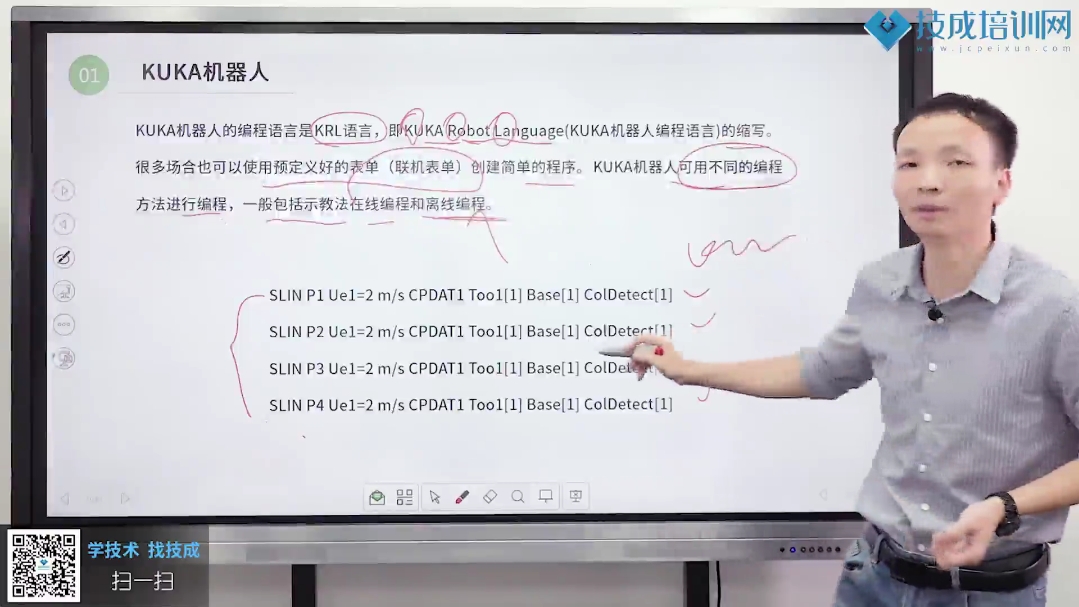 技成培训网
www.jcpeixun.com
01
KUKA机器人
KUKA机器人的编程语言是KRL语言，即KUKA Robot Language(KUKA机器人编程语言)的缩写。
很多场合也可以使用预定义好的表单（联机表单）创建简单的程序。KUKA机器人可用不同的编程
方法进行编程，一般包括示教法在线编程和离线编程。
SLIN P1 Ue1=2 m/s CPDAT1 Too1[1] Base[1] ColDetect[1]
SLIN P2 Ue1=2 m/s CPDAT1 Too1[1] Base[1] ColDetect[1]
SLIN P3 Ue1=2 m/s CPDAT1 Too1[1] Base[1]
SLIN P4 Ue1=2 m/s CPDAT1 Too1[1] Base[1] ColDetect[1]
学技术 找技成
扫一扫